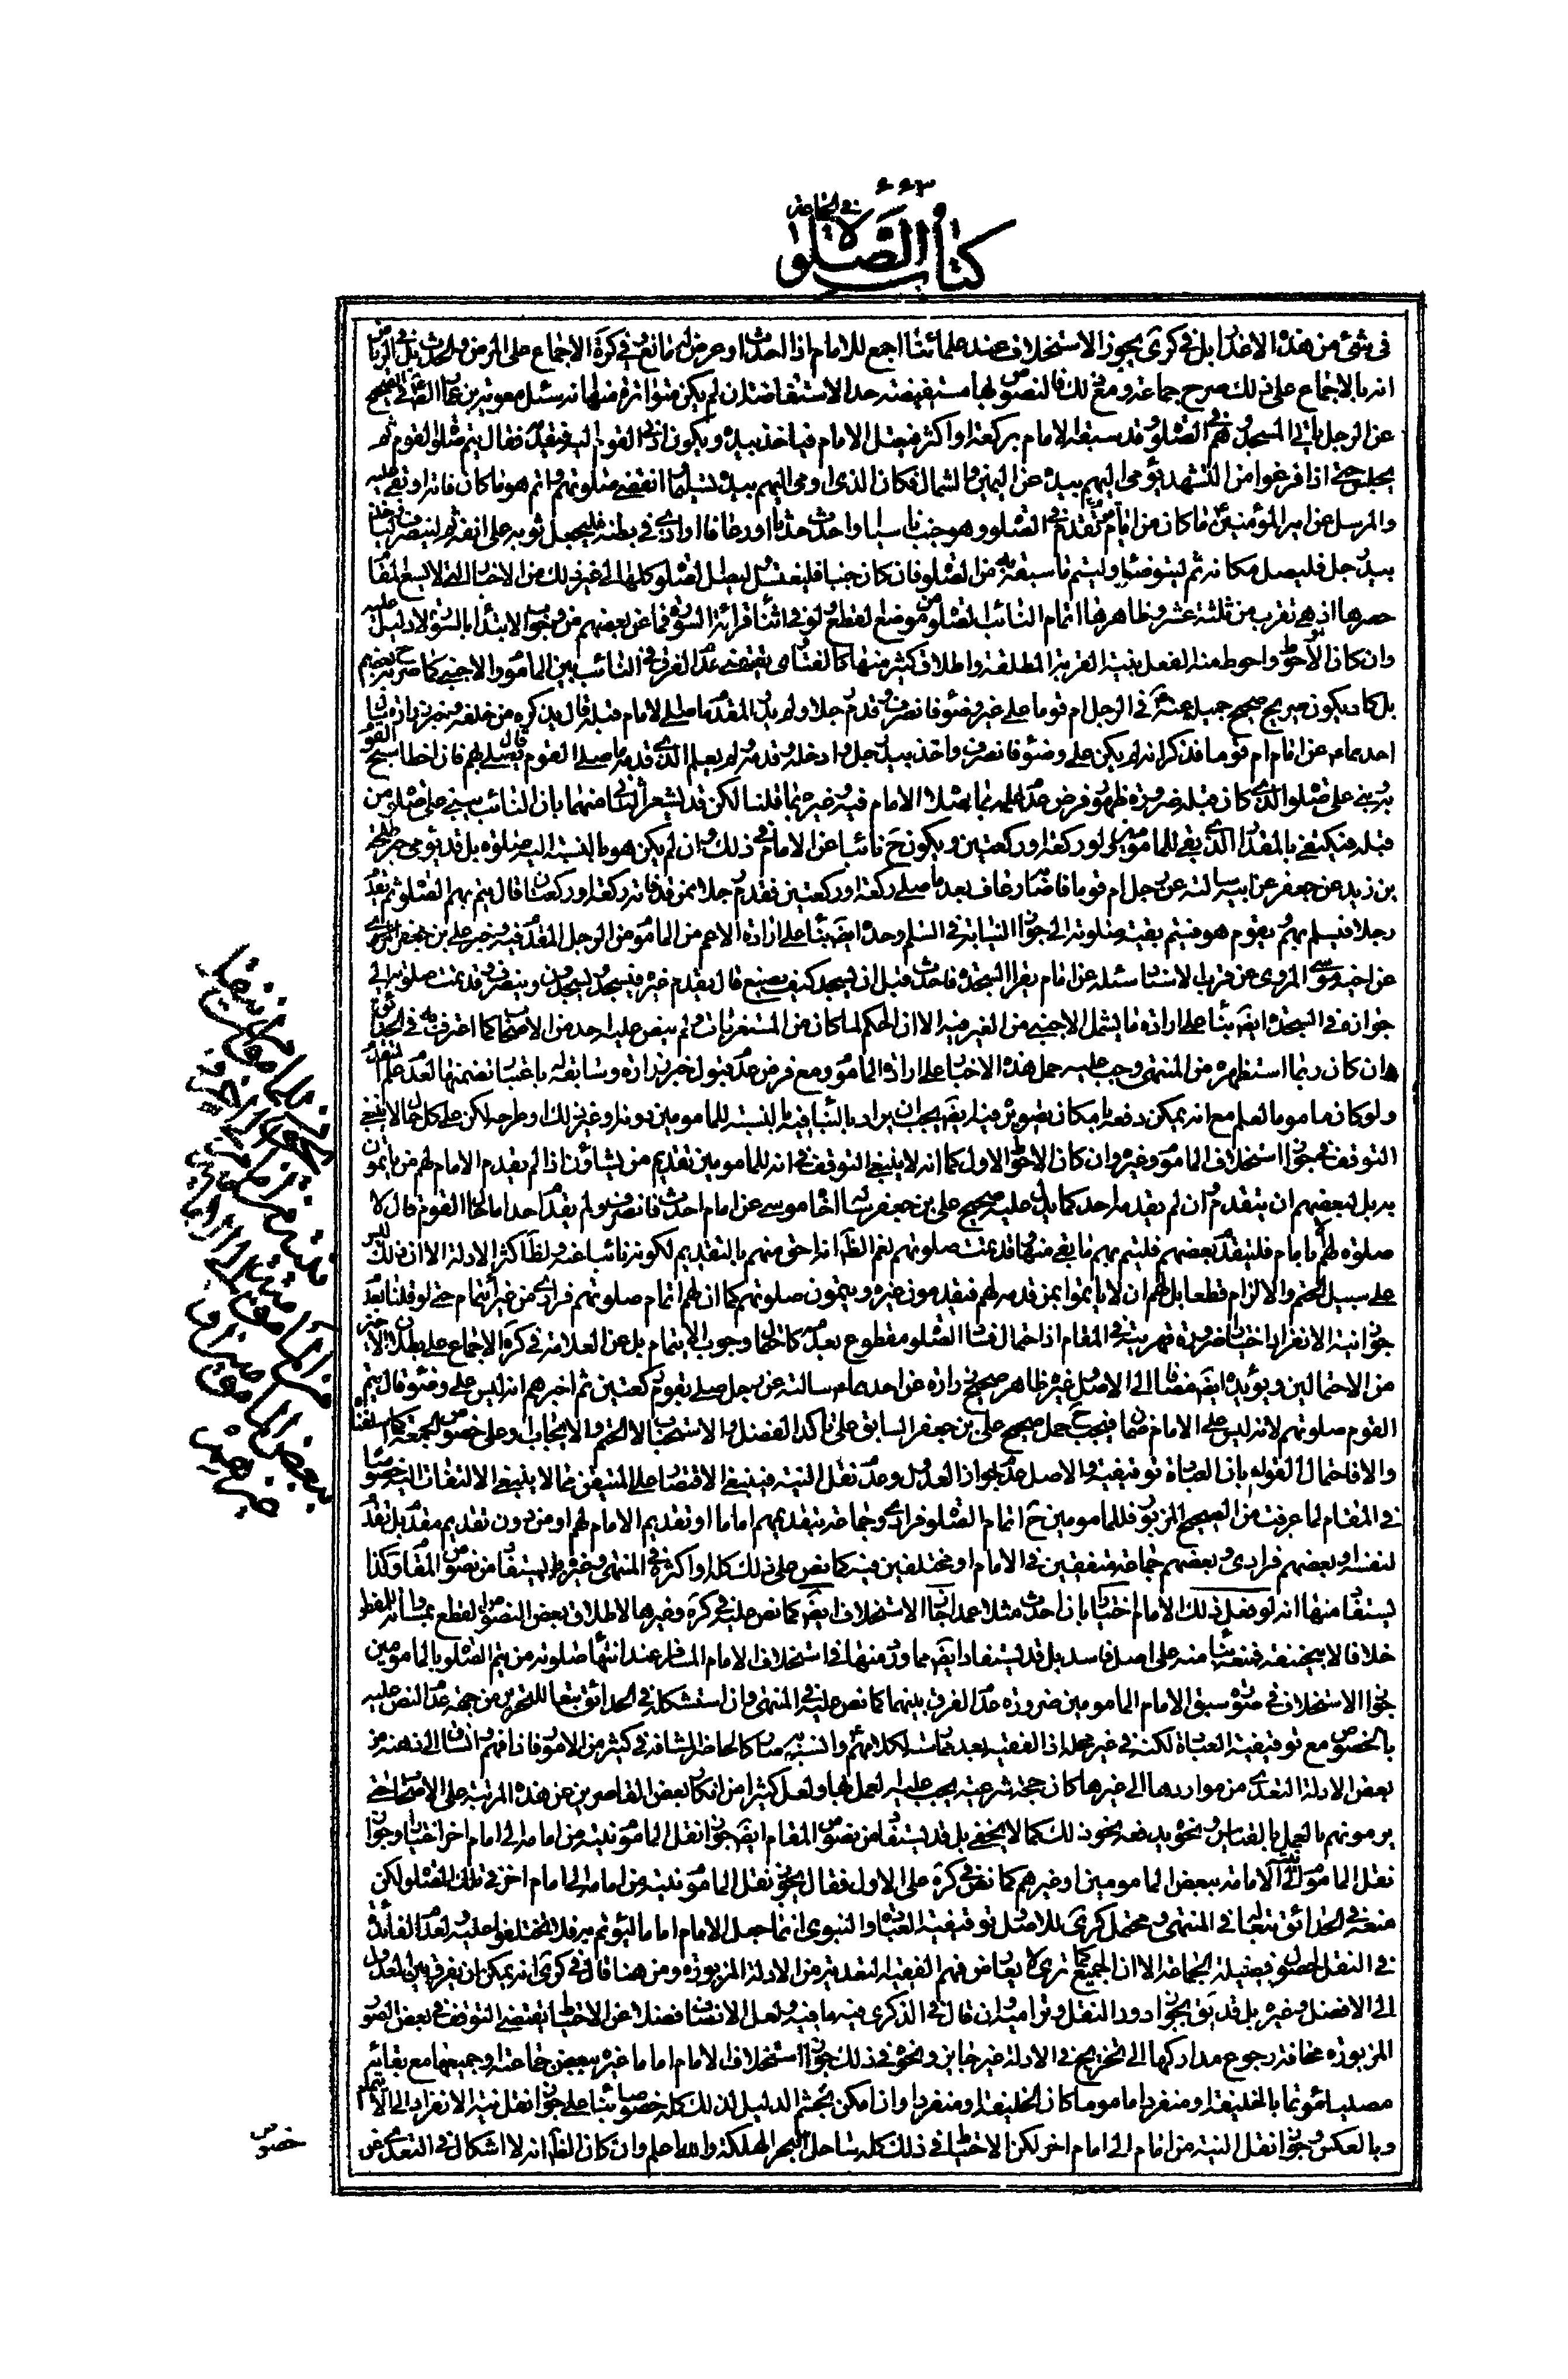 ٢٢٣
في الجماعة
كتاب الصلوة
في شيء من هذه الاعذار بل في كرى يجوز الاستخلاف عند علمائنا اجمع للامام اذا احدث او عرض له مانع وفي كرة الاجماع على المرض والحدث بل في الرياض
انه بالاجماع على ذلك صرح جماعة ومع ذلك فالنصوص بها مستفيضة حد الاستفاضة ان لم يكن متواترة منها انه سئل معوية بن عمار الصادق في الصحيح
عن الرجل ياتي المسجد وهم في الصلوة وقد سبقه الامام بركعة او اكثر فيعتل الامام فياخذ بيده ويكون ادنى القوم اليه فيقدمه فقال يتم صلوة القوم ثم
يجلس حتى اذا فرغوا من التشهد يؤمي اليهم بيده عن اليمين والشمال فكان الذي اومى اليهم بيده تسليما انقضى صلوتهم واتم هو ما كان فاته او بقي عليه
والمرسل عن امير المؤمنين ما كان من امام تقدم في الصلوة وهو جنب ناسيا او احدث حدثا او رعافا او اذى في بطنه فليجعل ثوبه على انفه ثم لينصرف
بيد رجل فليصل مكانه ثم ليتوضا وليتم ما سبقه به من الصلوة فان كان جنبا فليغتسل ليصل الصلوة كلها الى غير ذلك من الاخبار التي لا يسع المقام
حصرها اذ هي تقرب من ثلثة عشر وظاهرها اتمام النائب الصلوة من موضع القطع ولو في اثناء قرائة السورة فما عن بعضهم من وجوب الابتداء بالسورة لا دليل عليه
وان كان الاحوط واحوط منه الفعل بنية القربة المطلقة واطلاق كثير منها كالفتاوى يقتضي عدم الفرق في النائب بين الماموم والاجنبي كما صرح به بعضهم
بل كاد يكون صريح صحيح جميل عنه في الرجل ام قوما على غير وضوء فانصرف وقدم رجلا ولم يدر المقدم ما صلى الامام قبله قال يذكره من خلفه وخبر زرارة
احدهما عن امام ام قوما فذكر انه لم يكن على وضوء فانصرف واخذ بيد رجل وادخله وقدمه ولم يعلم الذي قدم ما صلى القوم قال يصلي بهم فان اخطا سبح القوم
به وبنى على صلوة الذي كان قبله ضرورة ظهور فرض عدم علمه بما صلا الامام فيه وغيره بما قلنا لكن قد يشعر الثاني منهما بان النائب يبنى على صلوة من
قبله فيكتفي بالمقدار الذي بقي للمامومين ولو ركعة او ركعتين ويكون ح نائبا عن الامام في ذلك وان لم يكن هو بالنسبة اليه صلوة بل قد يؤمي خبر طلحة
بن زيد عن جعفر عن ابيه سالته عن رجل ام قوما فاصابه رعاف بعد ما صلى ركعة او ركعتين فقدم رجلا ممن قد فاته ركعة او ركعتان قال يتم بهم الصلوة ثم يقدم
رجلا فيسلم بهم ويقوم هو فيتم بقية صلوته الى جواز النيابة في التسليم وحده ايضا بناء على ارادة الاعم من الماموم من الرجل المقدم فيه وخبر علي بن جعفر
عن اخيه موسى المروي عن قرب الاسناد سئله عن امام يقرا السجدة فاحدث قبل ان يسجد كيف يصنع قال يقدم غيره فيسجد ويسجدون وينصرف وقد تمت صلوتهم الى
جوازه في السجدة ايضا بناء على ارادة ما يشمل الاجنبي من الغير فيه الا ان الحكم لما كان من المستغربات ولم ينص عليه احد من الاصحاب كما اعترف به في الحدائق
وان كان ربما استظهره من المنتهى وجب عليه حمل هذه الاخبار على ارادة الماموم ومع فرض عدم قبول خبر زرارة وسابقه له باعتبار تضمنها لعدم علم المتقدم
ولو كان ماموما لعلم مع انه يمكن دفعه بامكان تصويره فيه ايضا يجب ان يراد بالنيابة فيه بالنسبة للمامومين دونه او غير ذلك او طرحه لكن على كل حال لا ينبغي
التوقف في جواز استخلاف الماموم وغيره وان كان الاحوط الاول كما انه لا ينبغي التوقف في انه للمامومين تقديم من يشاؤن اذا لم يقدم الامام لهم من ياتمون
به بل لبعضهم ان يتقدم وان لم يقدمه احد كما يدل عليه صحيح علي بن جعفر سال اخاه موسى عن امام احدث فانصرف ولم يقدم احدا ما حال القوم قال لا
صلوة لهم الا بامام فليتقدم بعضهم فليتم بهم ما بقي منها وقد تمت صلوتهم نعم الظاهر انه احق منهم بالتقديم لكونه نائبا عنه ولظاهر اكثر الادلة الا ان ذلك ليس
على سبيل الحتم والالزام قطعا بل لهم ان لا ياتموا بمن قدمه لهم فيقدمون غيره ويتمون صلوتهم كما ان لهم اتمام صلوتهم فرادى من غير ايتمام حتى لو قلنا بعدم
جواز نية الانفراد اختيارا ضرورة قهريته في المقام اذ احتمال فساد الصلوة مقطوع بعدمه كاحتمال وجوب الايتمام بل عن العلامة في كرة الاجماع على بطلان الاخير
من الاحتمالين ويؤيده ايضا مضافا الى الاصل وغيره ظاهر صحيح زرارة عن احدهما سالته عن رجل صلى بقوم ركعتين ثم اخبرهم انه ليس على وضوء قال يتم
القوم صلوتهم لانه ليس على الامام ضمان فيجب ح حمل صحيح علي بن جعفر السابق على تاكد الفضل والاستحباب لا الحتم والايجاب او على خصوص الجمعة كما اسلفنا
والا فاحتمال القول به بان العبادة توقيفية والاصل عدم جواز العدول وعدم نقل النية فينبغي الاقتصار على المتيقن مما لا ينبغي الالتفات اليه خصوصا
في المقام لما عرفت من الصحيح المزبور فللمامومين ح اتمام الصلوة فرادى وجماعة بتقديمهم اماما او تقديم الامام لهم او من دون تقديم مقدم بل تقدم
لنفسه او بعضهم فرادى وبعضهم جماعة متفقين في الامام او مختلفين فيه كما نص على ذلك كله او اكثره في المنتهى وغيره بل يستفاد من نصوص المقام وكذا
يستفاد منها انه لو فعل ذلك الامام اختيارا بان احدث مثلا عمدا جاز الاستخلاف ايضا كما نص عليه في كرة وغيرها لاطلاق بعض النصوص والقطع بمساواته للمضطر
خلافا لابي حنيفة فمنعه بناء منه على اصل فاسد بل قد يستفاد ايضا مما ورد منها في استخلاف الامام المسافر عند انتهاء صلوته من يتم الصلوة بالمامومين
جواز الاستخلاف في صورة سبق الامام المامومين ضرورة عدم الفرق بينهما كما نص عليه في المنتهى وان استشكله في الحدائق تبعا للتحرير من جهة عدم النص عليه
بالخصوص مع توقيفية العبادة لكنه في غير محله اذ الفقيه بعد ممارسته لكلامهم والنسبة به صار كالحاضر المشافه في كثير من الامور فاذا فهم وانساق الى ذهنه من
بعض الادلة التعدي من مواردها الى غيرها كان حجة شرعية يجب عليه العمل بها ولعل كثيرا من انكار بعض القاصرين عن هذه المرتبة على الاصحاب حتى
يرمونهم بالعمل بالقياس ونحوه يدفعه نحو ذلك كما لا يخفى بل قد يستفاد من نصوص المقام ايضا جواز نقل الماموم نيته من امامه الى امام اخر اختيارا وجواز
نقل الماموم نيته الى الامامة ببعض المامومين او غيرهم كما نص في كرة على الاول فقال يجوز نقل الماموم نيته من امامه الى امام اخر في تلك الصلوة لكن
منعه في الحدائق تبعا لما في المنتهى ومحتمل كرى للاصل وتوقيفية العبادة والنبوي انما جعل الامام اماما ليؤتم به فلا تختلفوا عليه ولعدم الفائدة
في النقل لحصول فضيلة الجماعة الا ان الجميع كما ترى لا يعارض فهم الفقيه التعدية من الادلة المزبورة ومن هنا قال في كرى انه يمكن ان يفرق بين العدول
الى الافضل وغيره بل قد يق بجواز دور النقل وتراميه وان قال في الذكرى فيه ما فيه ولعل الانصاف فضلا عن الاحتياط يقتضي التوقف في بعض الصور
المزبورة مخافة رجوع مداركها الى التخريج في الادلة غير جايز ونحوه في ذلك جواز استخلاف الامام اماما غيره ببعض جماعته او جميعها مع بقائه
مصليا مؤتما بالخليفة او منفردا ماموما كان الخليفة او منفردا وان امكن تجشم الدليل لذلك كله خصوصا بناء على جواز نقل نية الانفراد الى الايتمام
وبالعكس وجواز نقل النية من امام الى امام اخر لكن الاحتياط في ذلك كله ساحل البحر الهلكة والله اعلم وان كان الظاهر انه لا اشكال في التعدي عن
خصوص